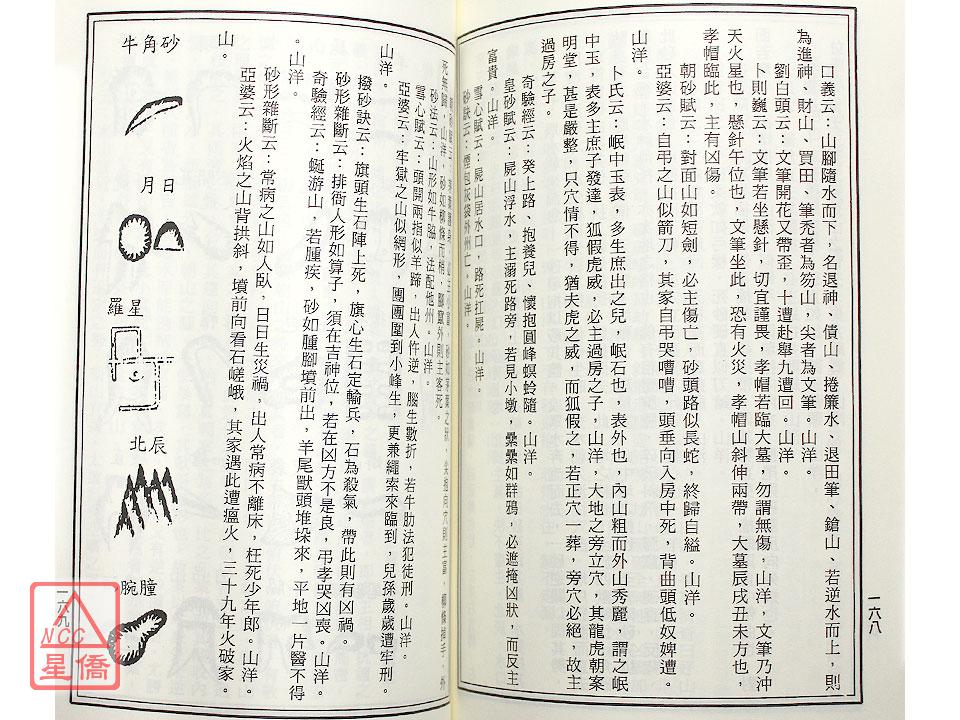 口義云：山腳隨水而下，名退神、債山、捲簾水、退田筆、鎗山，若逆水而上，則
為進神、財山、買田、筆禿者為笏山，尖者為文筆。山洋。
劉白頭云：文筆開花又帶歪，十遭赴舉九遭回。山洋。
卜則巍云：文筆若坐懸針，切宜謹畏，孝帽若臨大墓，勿謂無傷，山洋，文筆乃沖
天火星也，懸針午位也，文筆坐此，恐有火災，孝帽山斜伸兩帶，大墓辰戌丑未方也，
孝帽臨此，主有凶傷。
朝砂賦云：對面山如短劍，必主傷亡，砂頭路似長蛇，終歸自縊。山洋。
亞婆云：自弔之山似箭刀，其家自弔哭嘈嘈，頭垂向入房中死，背曲頭低奴婢遭。
山洋。
卜氏云：岷中玉表，多生庶出之兒，岷石也，表外也，內山粗而外山秀麗，謂之岷
中玉，表多主庶子發達，狐假虎威，必主過房之子，山洋，大地之旁立穴，其龍虎朝案
明堂，甚是嚴整，只穴情不得，猶夫虎之威，而狐假之，若正穴一葬，旁穴必絕，故主
過房之子。
奇驗經云：癸上路、抱養兒、懷抱圓峰螟蛉隨。山洋。
皇砂賦云：屍山浮水，主溺死路旁，若見小墩，纍纍如群鴉，必遮掩凶狀，而反主
富貴。山洋。
雪心賦云：屍山居水口，路死扛屍。山洋。
砂訣云：煙包灰袋外州亡。山洋。
一六八
死無歸，山洋，砂如柳條而梢，腳竄外則主客死。
砂法云：山形如牛腦，法配他州。山洋。
雪心賦云：頭開兩指似羊蹄，出人忤逆，腦生數折，若牛肋法犯徒刑。山洋。
亞婆云：牢獄之山似網形，團團圍到小峰生，更兼繩索來臨到，兒孫歲歲遭牢刑。
山洋。
撥砂訣云：旗頭生石陣上死，旗心生石定輸兵，石為殺氣，帶此則有凶禍。
砂形雜斷云：排衙人形如算子，須在吉神位，若在凶方不是良，弔孝哭凶喪。山洋。
奇驗經云：蜒游山，若腫疾，砂如腫腳墳前出，羊尾獸頭堆垛來，平地一片醫不得
。山洋。
砂形雜斷云：常病之山如人臥，日日生災禍，出人常病不離床，枉死少年郎。山洋。
亞婆云：火焰之山背拱斜，墳前向看石嵯峨，其家遇此遭瘟火，三十九年火破家。
山。
牛角砂
日月
羅星
北辰
腕腫
一六九
NCC
星僑